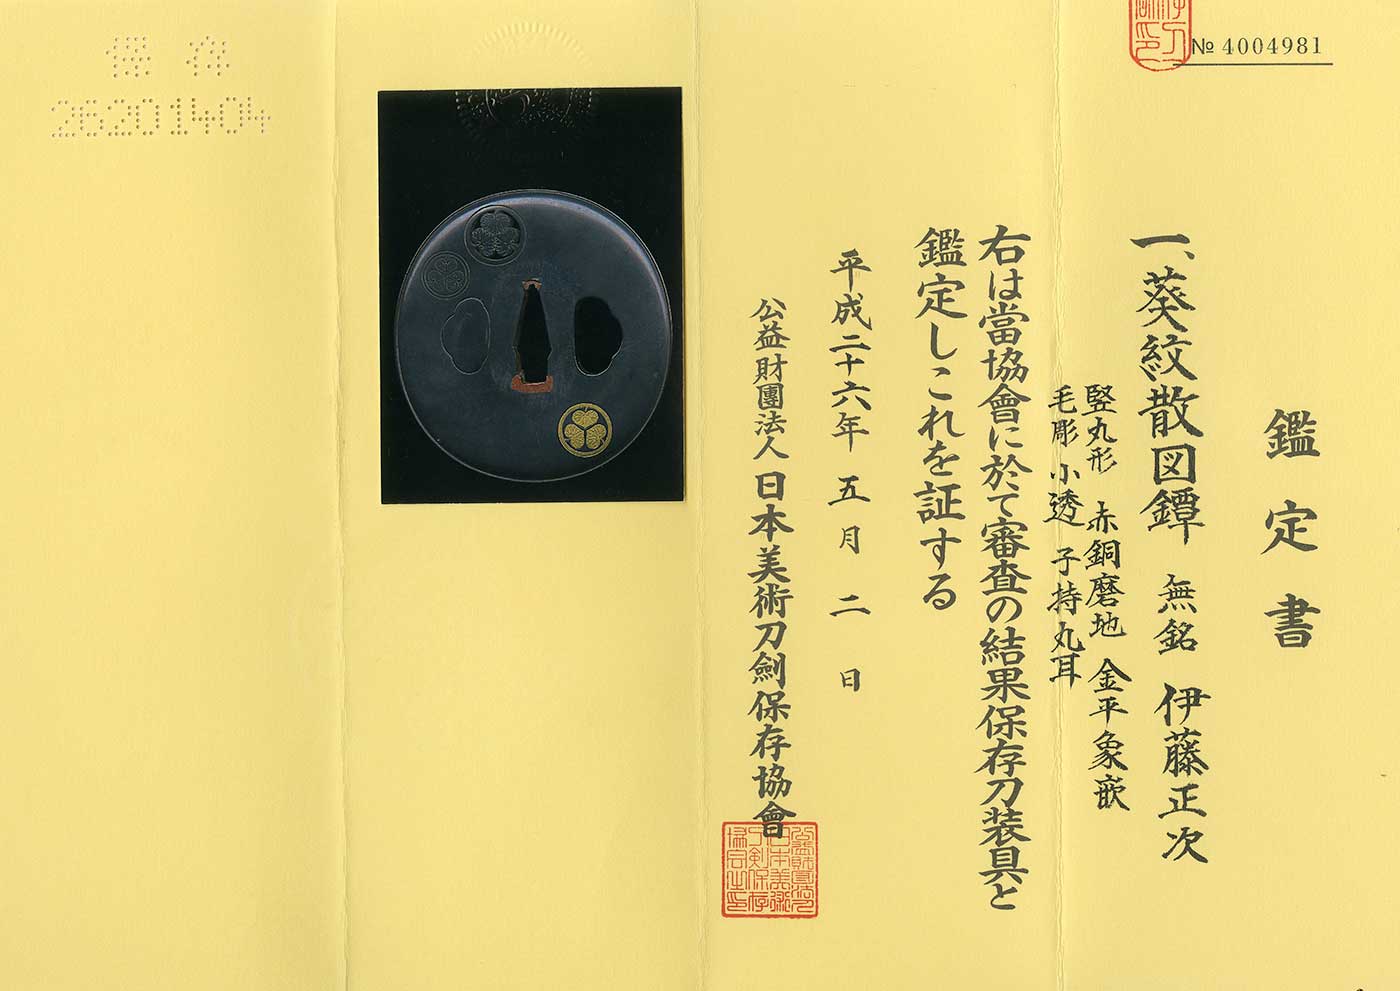 № 4004981
鑑定書
一、葵紋散図鐔 無銘 伊藤正次
竪丸形 赤銅磨地 金平象嵌
毛彫 小透 子持丸耳
右は當協會に於て審査の結果保存刀装具と
鑑定しこれを証する
平成二十六年 五月 二日
公益財團法人 日本美術刀劍保存協會
保存
26201404